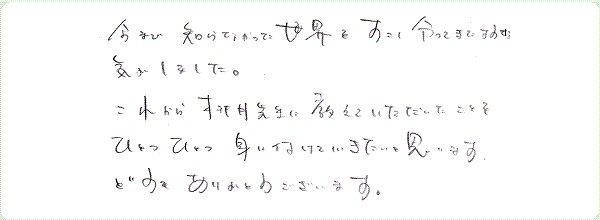 今まで 知らなかった世界を すこし知ってきたような
気がしました。
これから 村井先生に教えていただいたことを
ひとつひとつ 身に付けていきたいと思います。
どうも ありがとうございます。